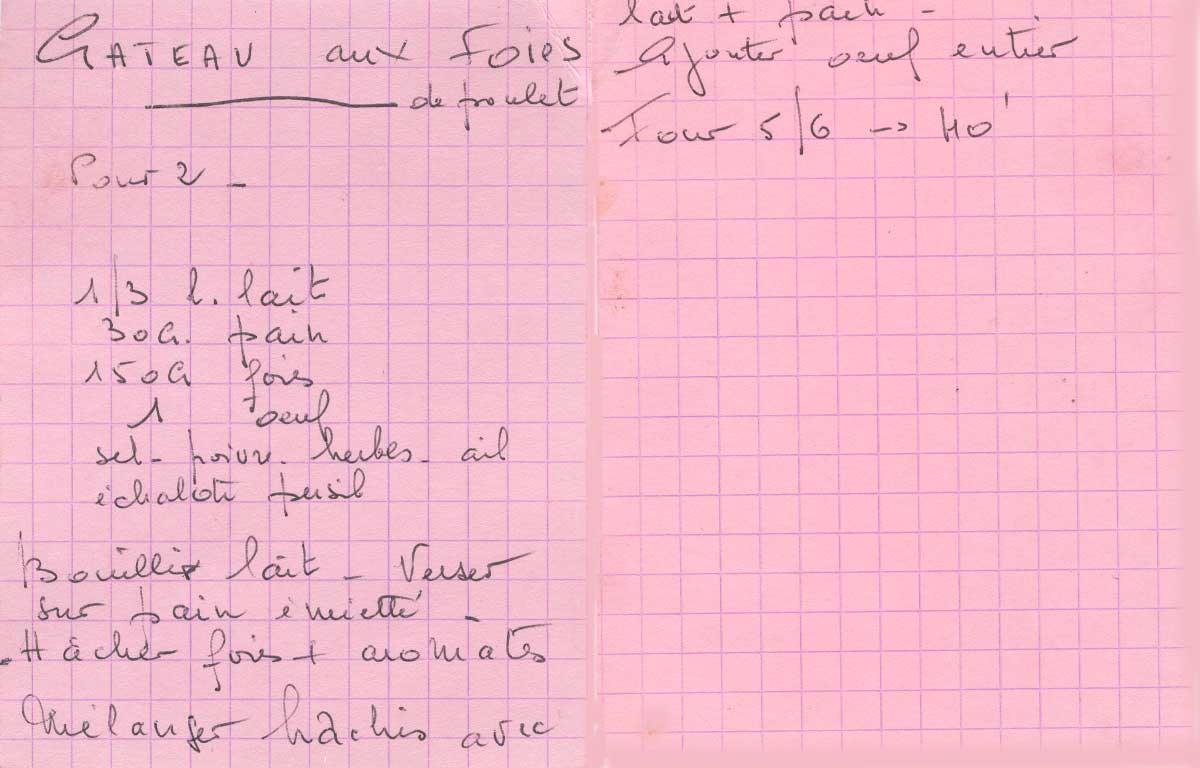 GATEAU aux Foies
de poulet
Pour 2 -
1/3 l. lait
30G. pain
150G foies
1 oeuf
sel - poivre - herbes - ail
échalote persil
Bouillir lait - Verser
sur pain émietté -
- Hâcher foies + aromates
Mélanger hâchis avec
lait + pain -
Ajouter oeuf entier
Four 5/6 -> 40'